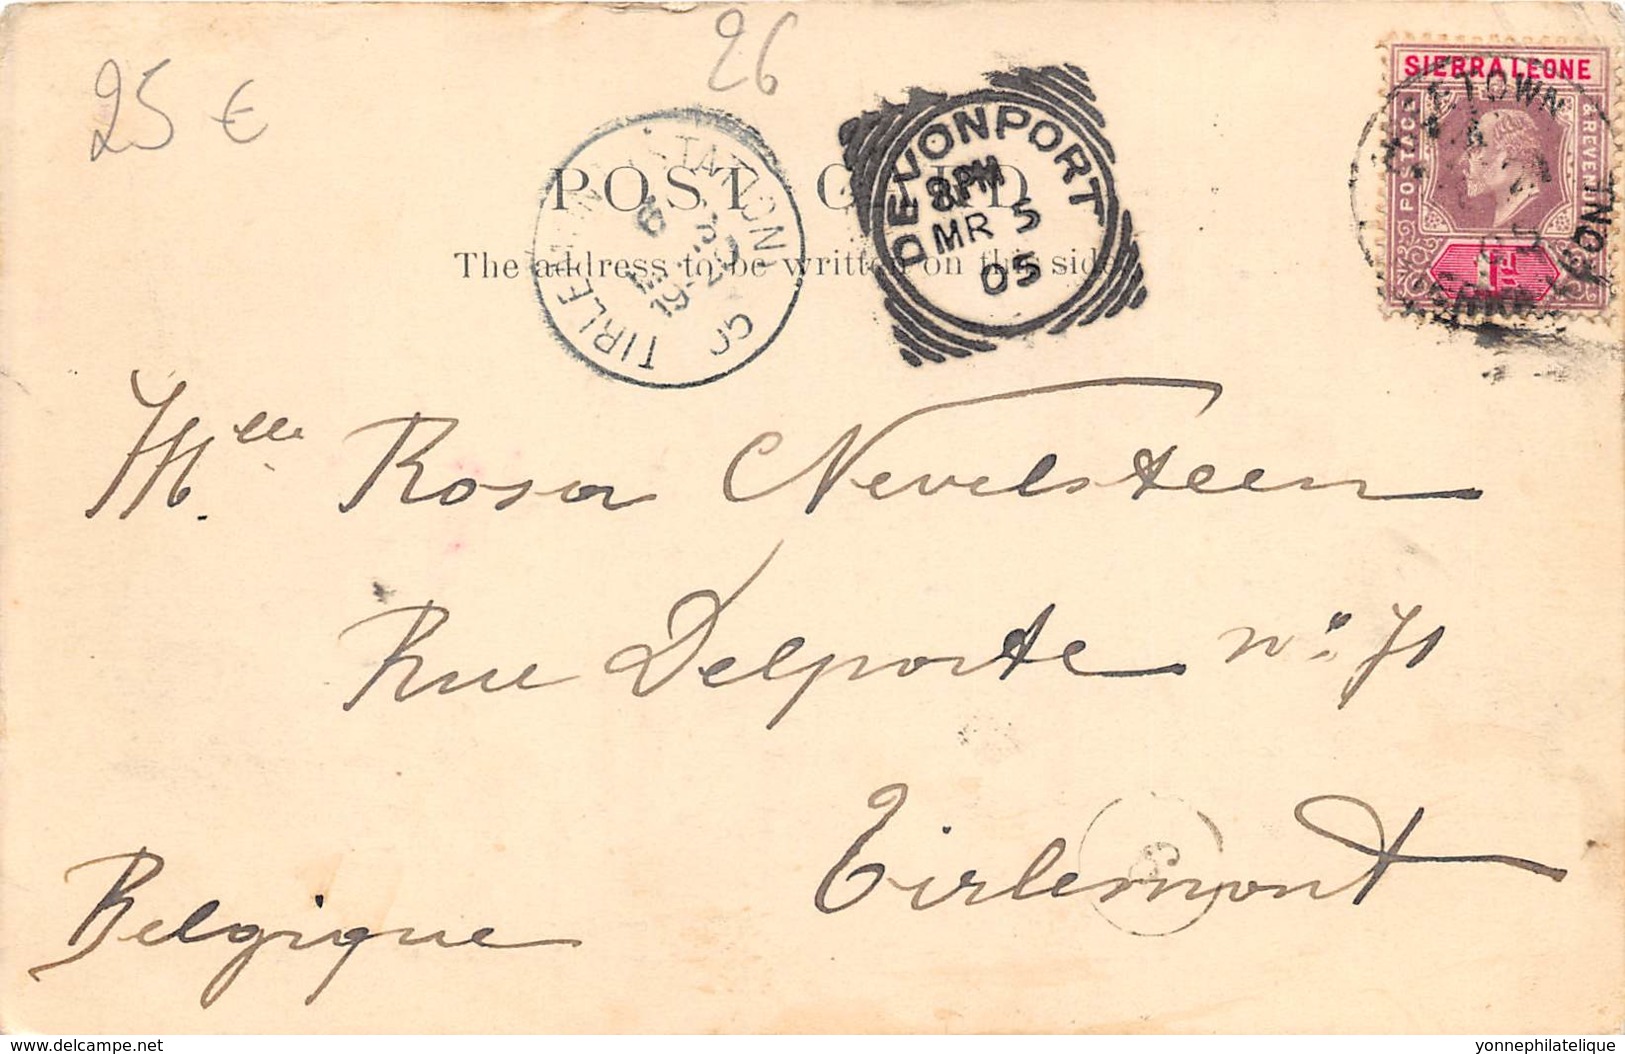 25 €
26
SIERRA LEONE
POSTAGE & REVENUE
1D
FREETOWN
TIRLEMONT (STATION)
DEVONPORT
8PM
MR 5
05
POST CARD
The address to be written on this side
Mlle Rosa Nevelsteen
Rue Delporte no 71
Tirlemont
Belgique
www.delcampe.net
yonnephilatelique